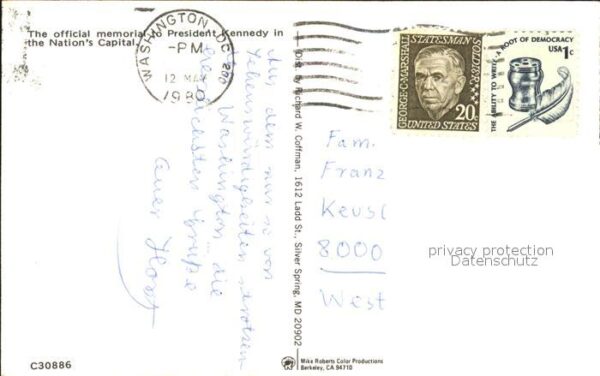 The official memorial to President Kennedy in
the Nation's Capital.
WASHINGTON, DC 200
-PM
12 MAY
1980
GEORGE·C·MARSHALL
STATESMAN
SOLDIER
20c
UNITED STATES
THE ABILITY TO WRITE · A ROOT OF DEMOCRACY
USA 1c
Aus dem nur so von
Sehenswürdigkeiten strotzen
Washington die
herzlichsten Grüße
Euer Horst
Dist. by Richard W. Coffman, 1612 Ladd St., Silver Spring, MD 20902
Fam.
Franz
Keusl
8000
West
privacy protection
Datenschutz
C30886
Mike Roberts Color Productions
Berkeley, CA 94710